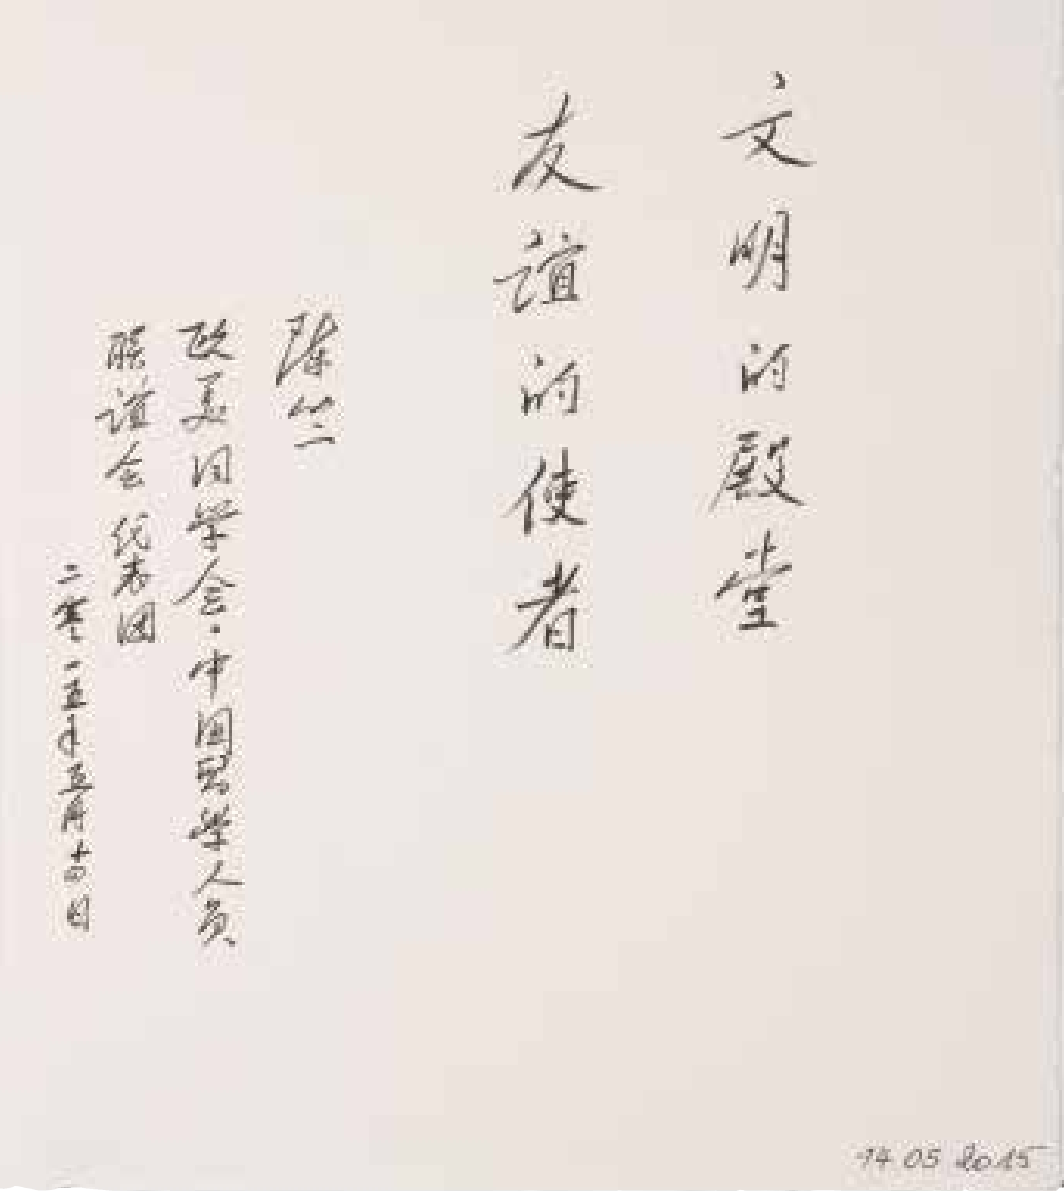 文明的殿堂
友谊的使者
陈竺
欧美同学会·中国留学人员
联谊会代表团
二零一五年五月十四日
14 05 2015